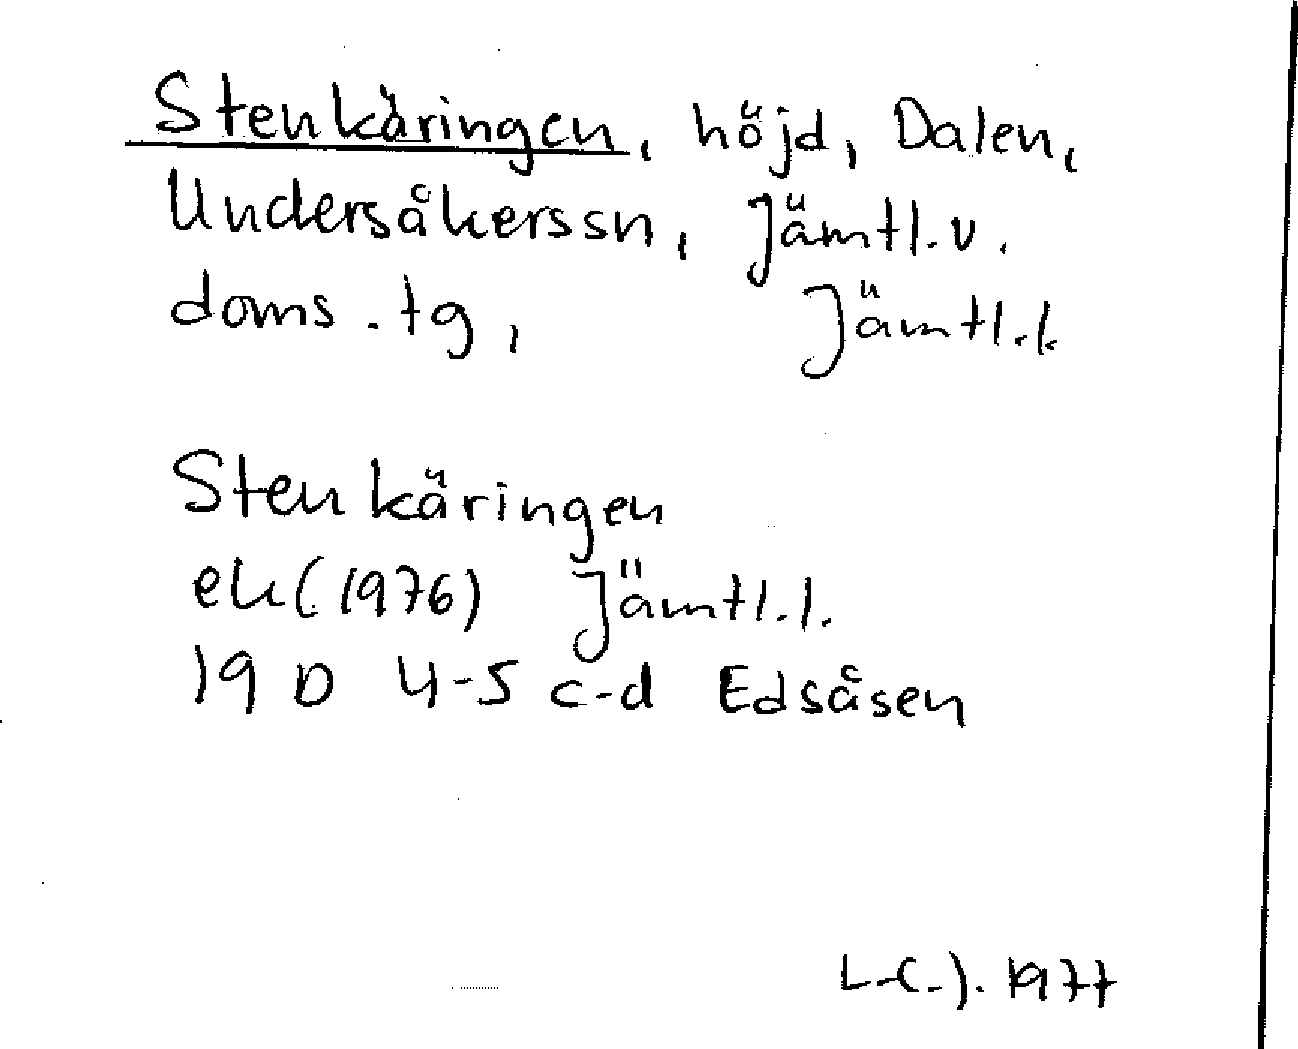 Stenkäringen, höjd, Dalen,
Undersåkerssn, Jämtl.v.
doms.tg, Jämtl.l.
Stenkäringen
ek(1976) Jämtl.l.
19 D 4-5 c-d Edsåsen
L-C-J. 1977